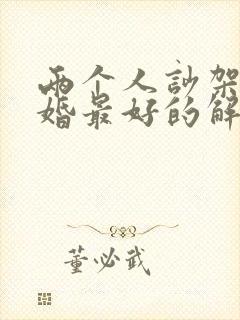 两个人訬架
婚最好的解
董必武